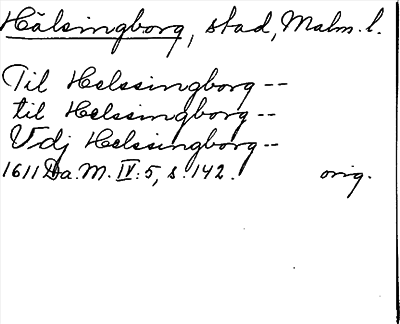 Hälsingborg, stad, Malm. l.
Til Helssingborg --
til Helssingborg --
Vdj Helssingborg --
1611 Da. M. IV:5, s. 142. orig.